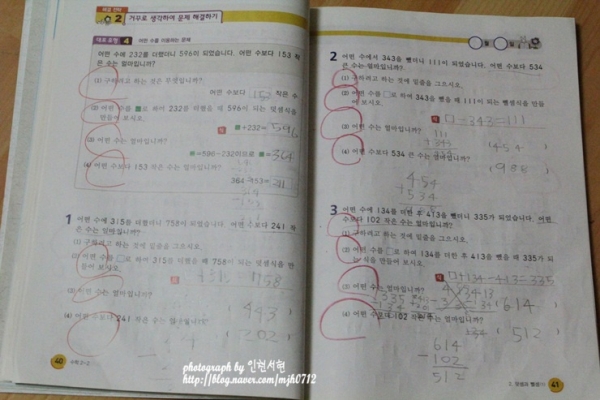 해결 전략
02 거꾸로 생각하여 문제 해결하기
대표 유형 4 어떤 수를 이용하는 문제
어떤 수에 232를 더했더니 596이 되었습니다. 어떤 수보다 153 작
은 수는 얼마입니까?
(1) 구하려고 하는 것은 무엇입니까?
어떤 수보다 153 작은 수
(2) 어떤 수를 ■로 하여 232를 더했을 때 596이 되는 덧셈식을
만들어 보시오.
■+232=596
(3) 어떤 수는 얼마입니까?
■=596-232이므로 ■=364
(4) 어떤 수보다 153 작은 수는 얼마입니까?
364-153=211
1 어떤 수에 315를 더했더니 758이 되었습니다. 어떤 수보다 241 작
은 수는 얼마입니까?
(1) 구하려고 하는 것에 밑줄을 그으시오.
(2) 어떤 수를 □로 하여 315를 더했을 때 758이 되는 덧셈식을 만
들어 보시오.
+315=758
(3) 어떤 수는 얼마입니까?
443
(4) 어떤 수보다 241 작은 수는 얼마입니까?
202
40 수학 2-2
2 어떤 수에서 343을 뺐더니 111이 되었습니다. 어떤 수보다 534
큰 수는 얼마입니까?
(1) 구하려고 하는 것에 밑줄을 그으시오.
(2) 어떤 수를 □로 하여 343을 뺐을 때 111이 되는 뺄셈식을 만들
어 보시오.
식 □-343=111
(3) 어떤 수는 얼마입니까?
111
343
(454)
(4) 어떤 수보다 534 큰 수는 얼마입니까?
(988)
454
+534
3 어떤 수에 134를 더한 후 413을 뺐더니 335가 되었습니다. 어떤
수보다 102 작은 수는 얼마입니까?
(1) 구하려고 하는 것에 밑줄을 그으시오.
(2) 어떤 수를 □로 하여 134를 더한 후 413을 뺐을 때 335가 되
는 식을 만들어 보시오.
식 □+134-413=335
(3) 어떤 수는 얼마입니까?
(614)
(4) 어떤 수보다 102 작은 수는 얼마입니까?
(512)
614
-102
512
41
photograph by 인현서현
http://blog.naver.com/mjh0712